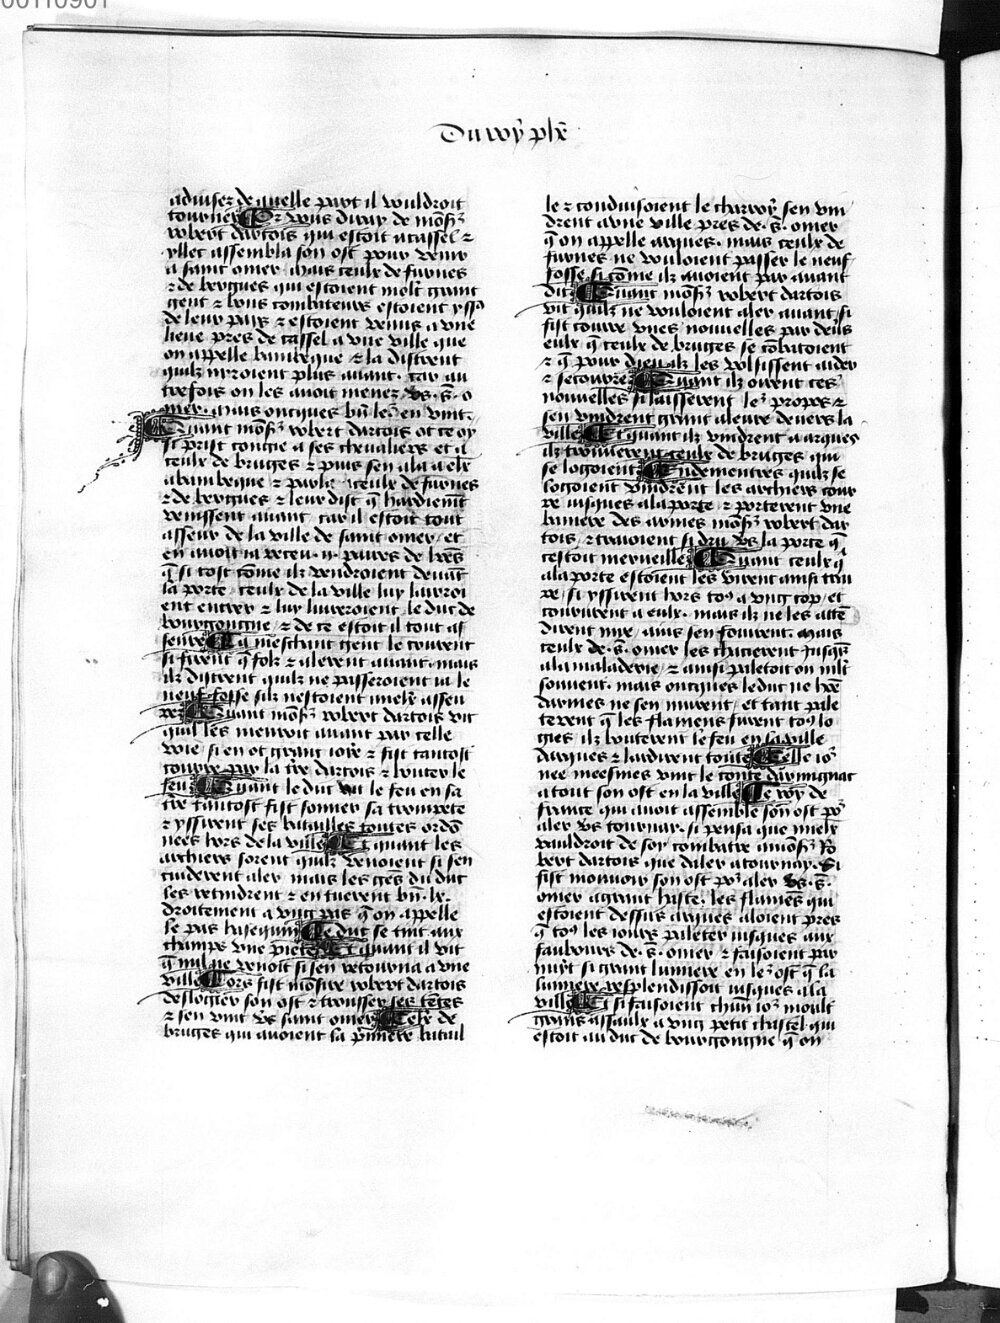 00110901
Du roy phẽ
adviser de quelle part il vouldroit
tourner Or vous diray de mõsʳ
robert dartois qui estoit a cassel ⁊
yllec assembla son ost pour venir
a saint omer. mais ceulx de furnes
⁊ de bergues qui estoient molt grant
gent ⁊ bons combateurs estoient yssᵘ
de leur pais ⁊ estoient venus a vne
lieue pres de cassel a vne ville que
on appelle bambeque ⁊ la distrent
quilz nyroient plus auant. car au
trefois on les auoit menez vs .s. o
mer. mais oncques bñ leʳ en vint.
Quant mõsʳ robert dartois ot ce oy
si prist congie a ses cheualiers et a
ceulx de bruges ⁊ puis sen ala a elx
a bambeque ⁊ parla a ceulx de furnes
⁊ de bergues ⁊ leur dist q̃ hardiemẽt
venissent auant, car il estoit tout
asseur de la ville de saint omer, et
en auoit ia receu .ij. paires de lr̃es
q̃ si tost cõme ilz vendroient deuãt
la porte, ceulx de la ville luy liurroi
ent entrer ⁊ luy liureroient le duc de
bourgongne, ⁊ de ce estoit il tout as
seure La meschant gent le crurent
si firent q̃ folz ⁊ alerent auant. mais
ilz distrent quilz ne passeroient ia le
neuf fosse silz nestoient mielx asseu
rez Quant mõsʳ robert dartois vit
quil les menroit auant par celle
voie, si en ot grant ioie ⁊ fist tantost
courre par la tr̃e dartois ⁊ bouter le
feu Quant le duc vit le feu en sa
tr̃e tantost fist sonner sa trompete
⁊ yssirent ses batailles toutes ordõ
nees hors de la ville Et quant les
archiers sorent quilz venoient si sen
cuiderent aler mais les gẽs du duc
les retindrent ⁊ en tuerent bñ .lx.
droitement a vng pas q̃ on appelle
le pas hasequin Le duc se tint aux
champs vne piece Et quant il vit
q̃ nul ne venoit si sen retourna a une
ville Lors fist mõsire robert dartois
deslogier son ost ⁊ trousser ses tẽtes
⁊ sen vint vs saint omer Ceulx de
bruges qui auoient la p̃miere batail
le ⁊ conduisoient le charroy, sen vin
drent a vne ville pres de .s. omer
q̃ on appelle arques. mais ceulx de
furnes ne vouloient passer le neuf
fosse si cõme ilz auoient par auant
dit Quant mõsʳ robert dartois
vit quilz ne vouloient aler auant, si
fist courre vnes nouvelles par deuͥs
eulx q̃ ceulx de bruges se cõbatoient
⁊ q̃ pour dieu ilz les volsissent aider
⁊ secourre Quant ilz oirent ces
nouvelles si laisserent leʳ propos ⁊
sen vindrent grant aleure deuers la
ville Et quant ilz vindrent a arques
ilz trouuerent ceulx de bruges qui
se logoient Endementres quilz se
logoient vindrẽt les archiers cour
re iusques a la porte, ⁊ porterent vne
baniere des armes mõsʳ robert dar
tois, ⁊ traioient si dru vs la porte q̃
cestoit merueille Quant ceulx q̃
a la porte estoient les virent ainsi trai
re, si yssirent hors toˢ a vng cop, et
coururent a eulx. mais ilz ne les attẽ
dirent mie, ains sen fouirent. mais
ceulx de .s. omer les chacierent iusqs̃
a la maladerie, ⁊ ainsi paletoit on mlt̃
souuent. mais oncques le duc ne hõe
darmes ne sen murent, et tant pale
terent q̃ les flamens furent toˢ lo
gies, ilz bouterent le feu en la ville
darques ⁊ lardirent toute Celle ioʳ
nee meesmes vint le conte darmignac
a tout son ost en la ville Le roy de
france qui auoit assemble son ost poʳ
aler vs tournay. si pensa que mielx
vauldroit de soy combatre a mõsʳ ro
bert dartois que daler a tournay. si
fist mouuoir son ost poʳ aler vs .s.
omer a grant haste, les flamẽs qui
estoient dessus arques aloient pres
q̃ toˢ les iours paleter iusques aux
faubours de .s. omer, ⁊ faisoient par
nuit si grant lumiere en leʳ ost q̃ la
lumiere resplendissoit iusques a la
ville Et si faisoient chũn ioʳ moult
grans assaulx a vng petit chastel qui
estoit au duc de bourgongne q̃ on